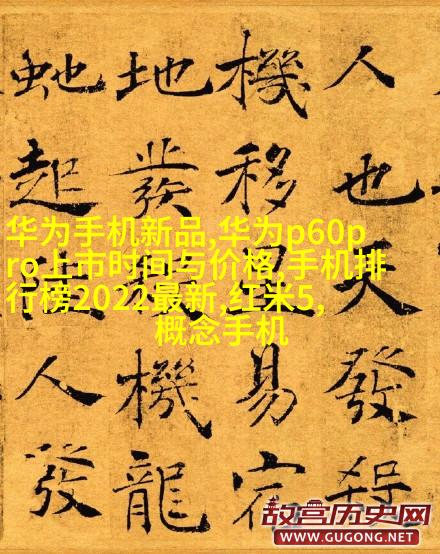 人也天發殺
機移星易宿
地發殺機龍
虵起陸人發
华为手机新品,华为p60p
ro上市时间与价格,手机排
行榜2022最新,红米5,
概念手机
故宫历史网
WWW.GUGONG.NET